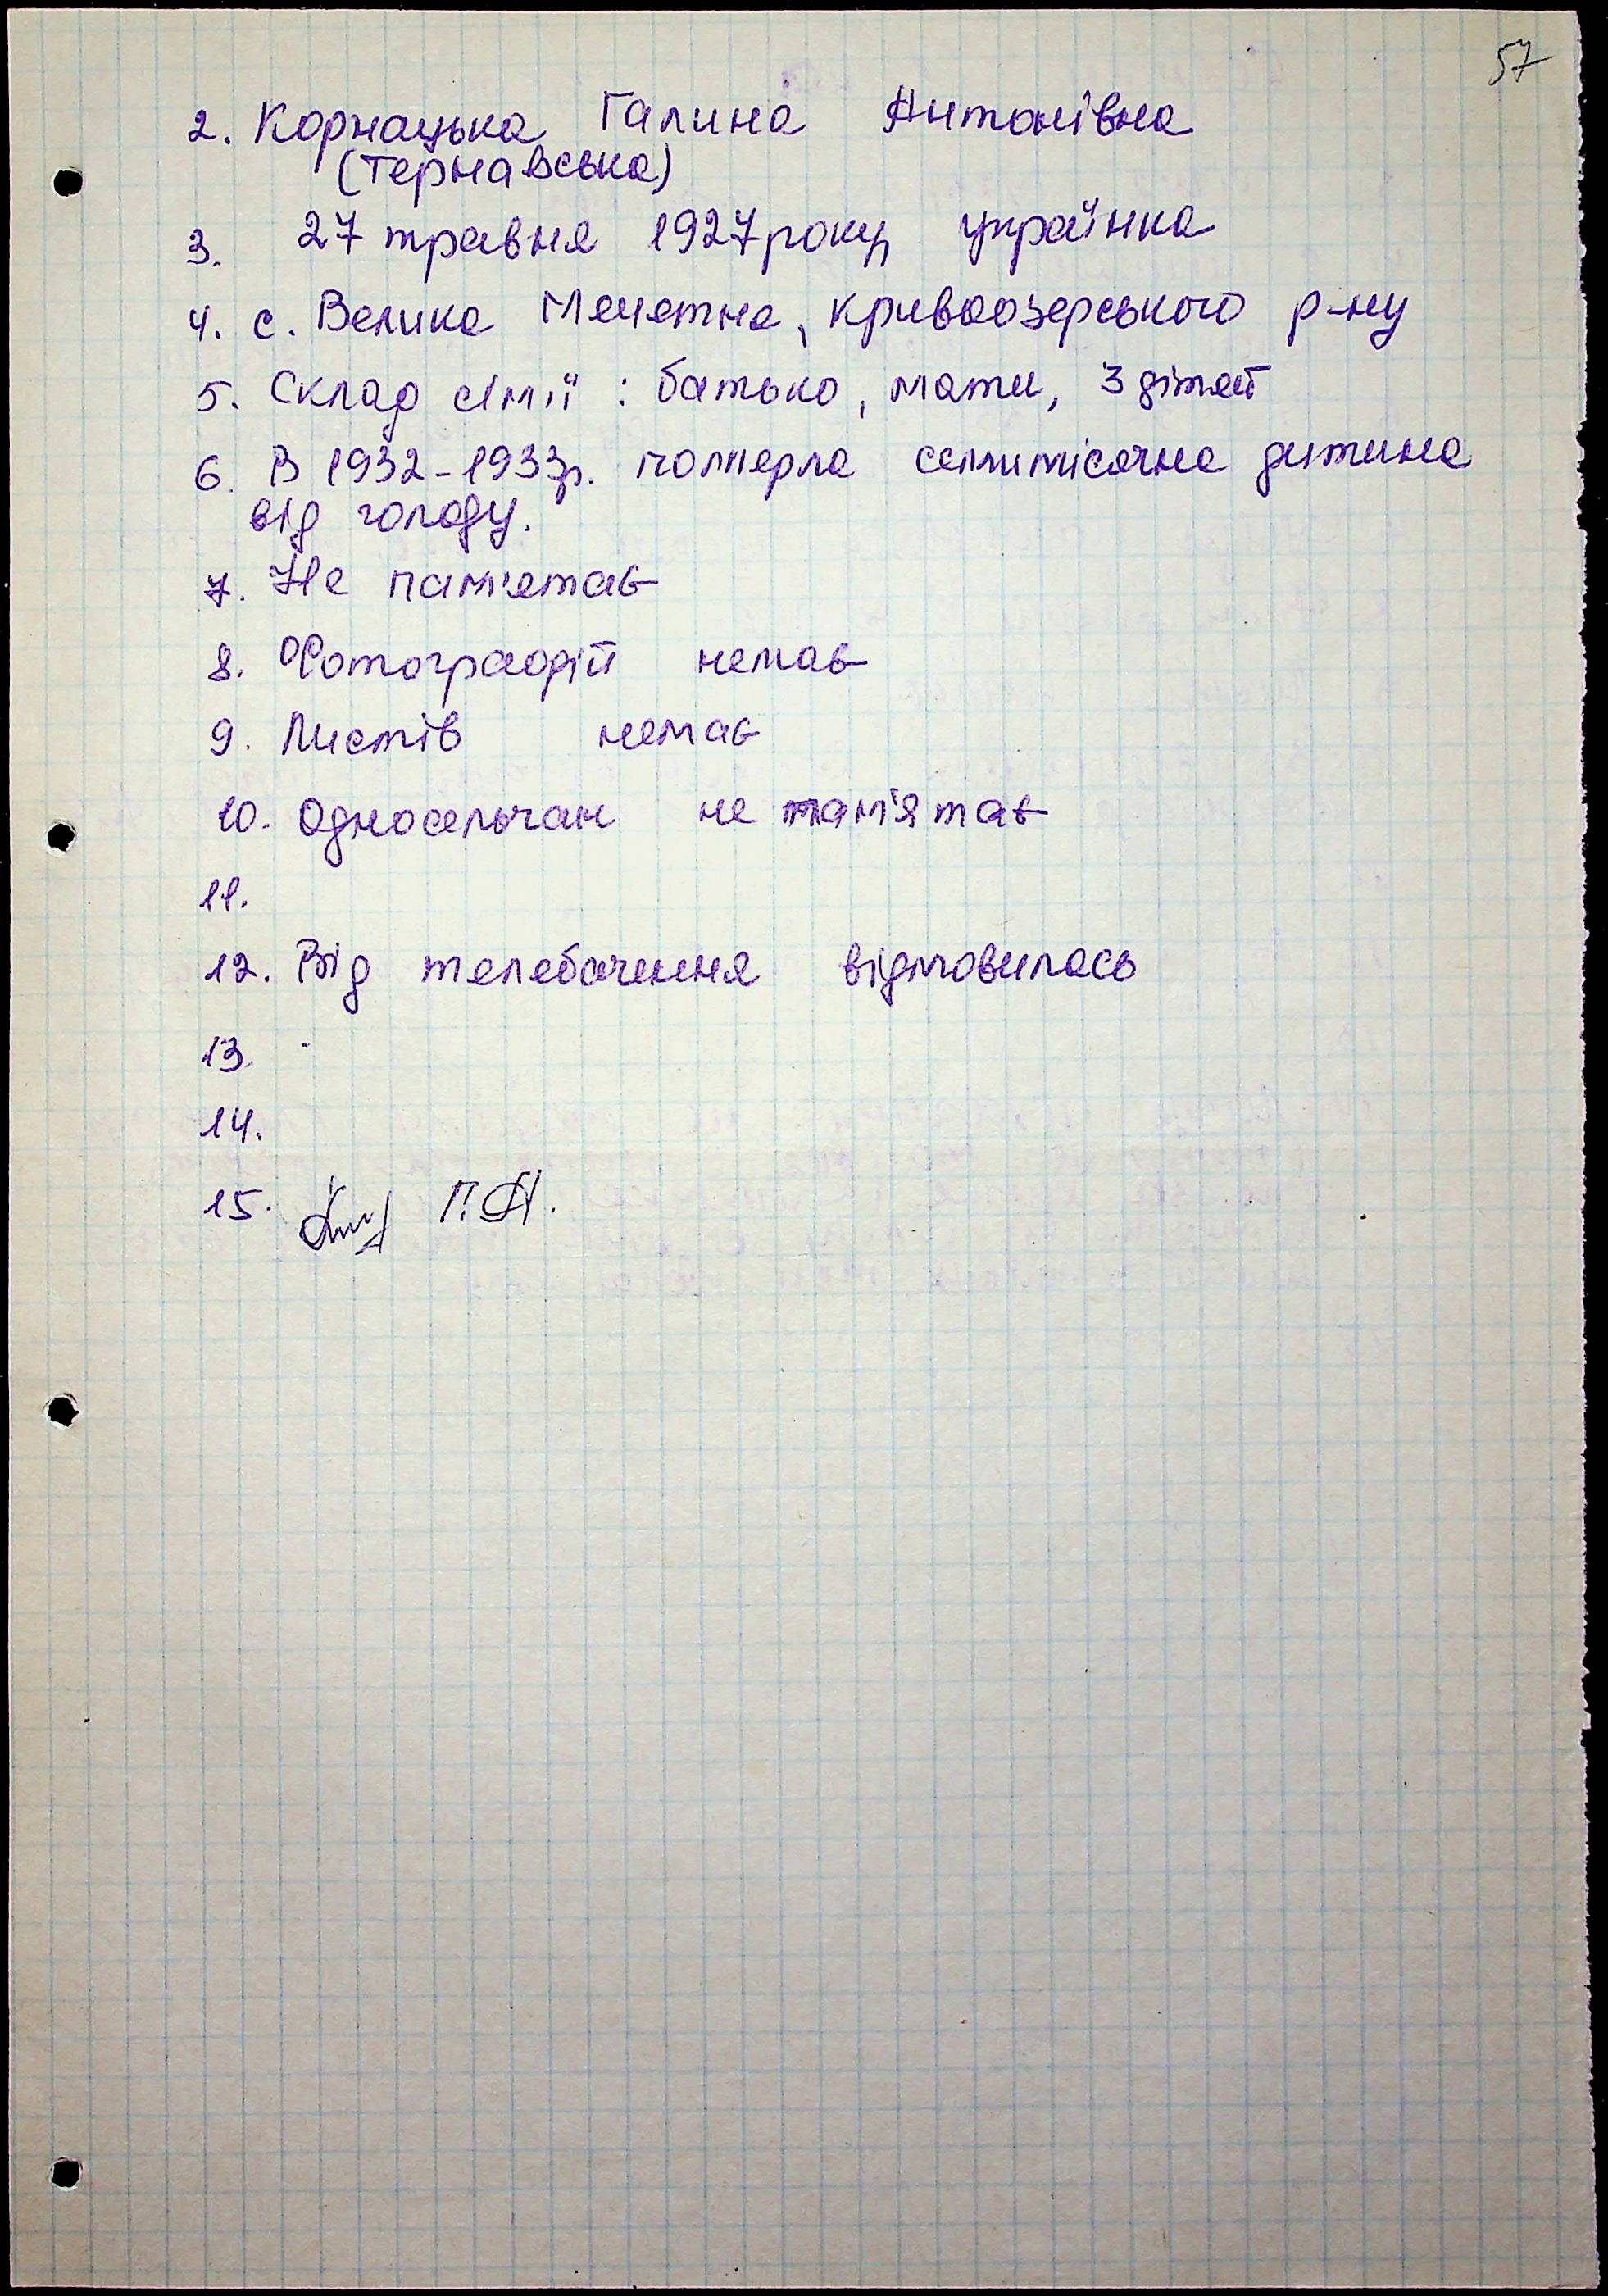 57
2. Корнацька Галина Антонівна
(Тернавська)
3. 27 травня 1927 року українка
4. с. Велика Мечетня, Кривоозерського р-ну
5. Склад сімії : батько, мати, 3 дітей
6. В 1932-1933р. померла семимісячна дитина
від голоду.
7. Не пам'ятає
8. Фотографій немає
9. Листів немає
10. Односельчан не пам'ятає
11.
12. Від телебачення відмовилась
13.
14.
15. Г.А.